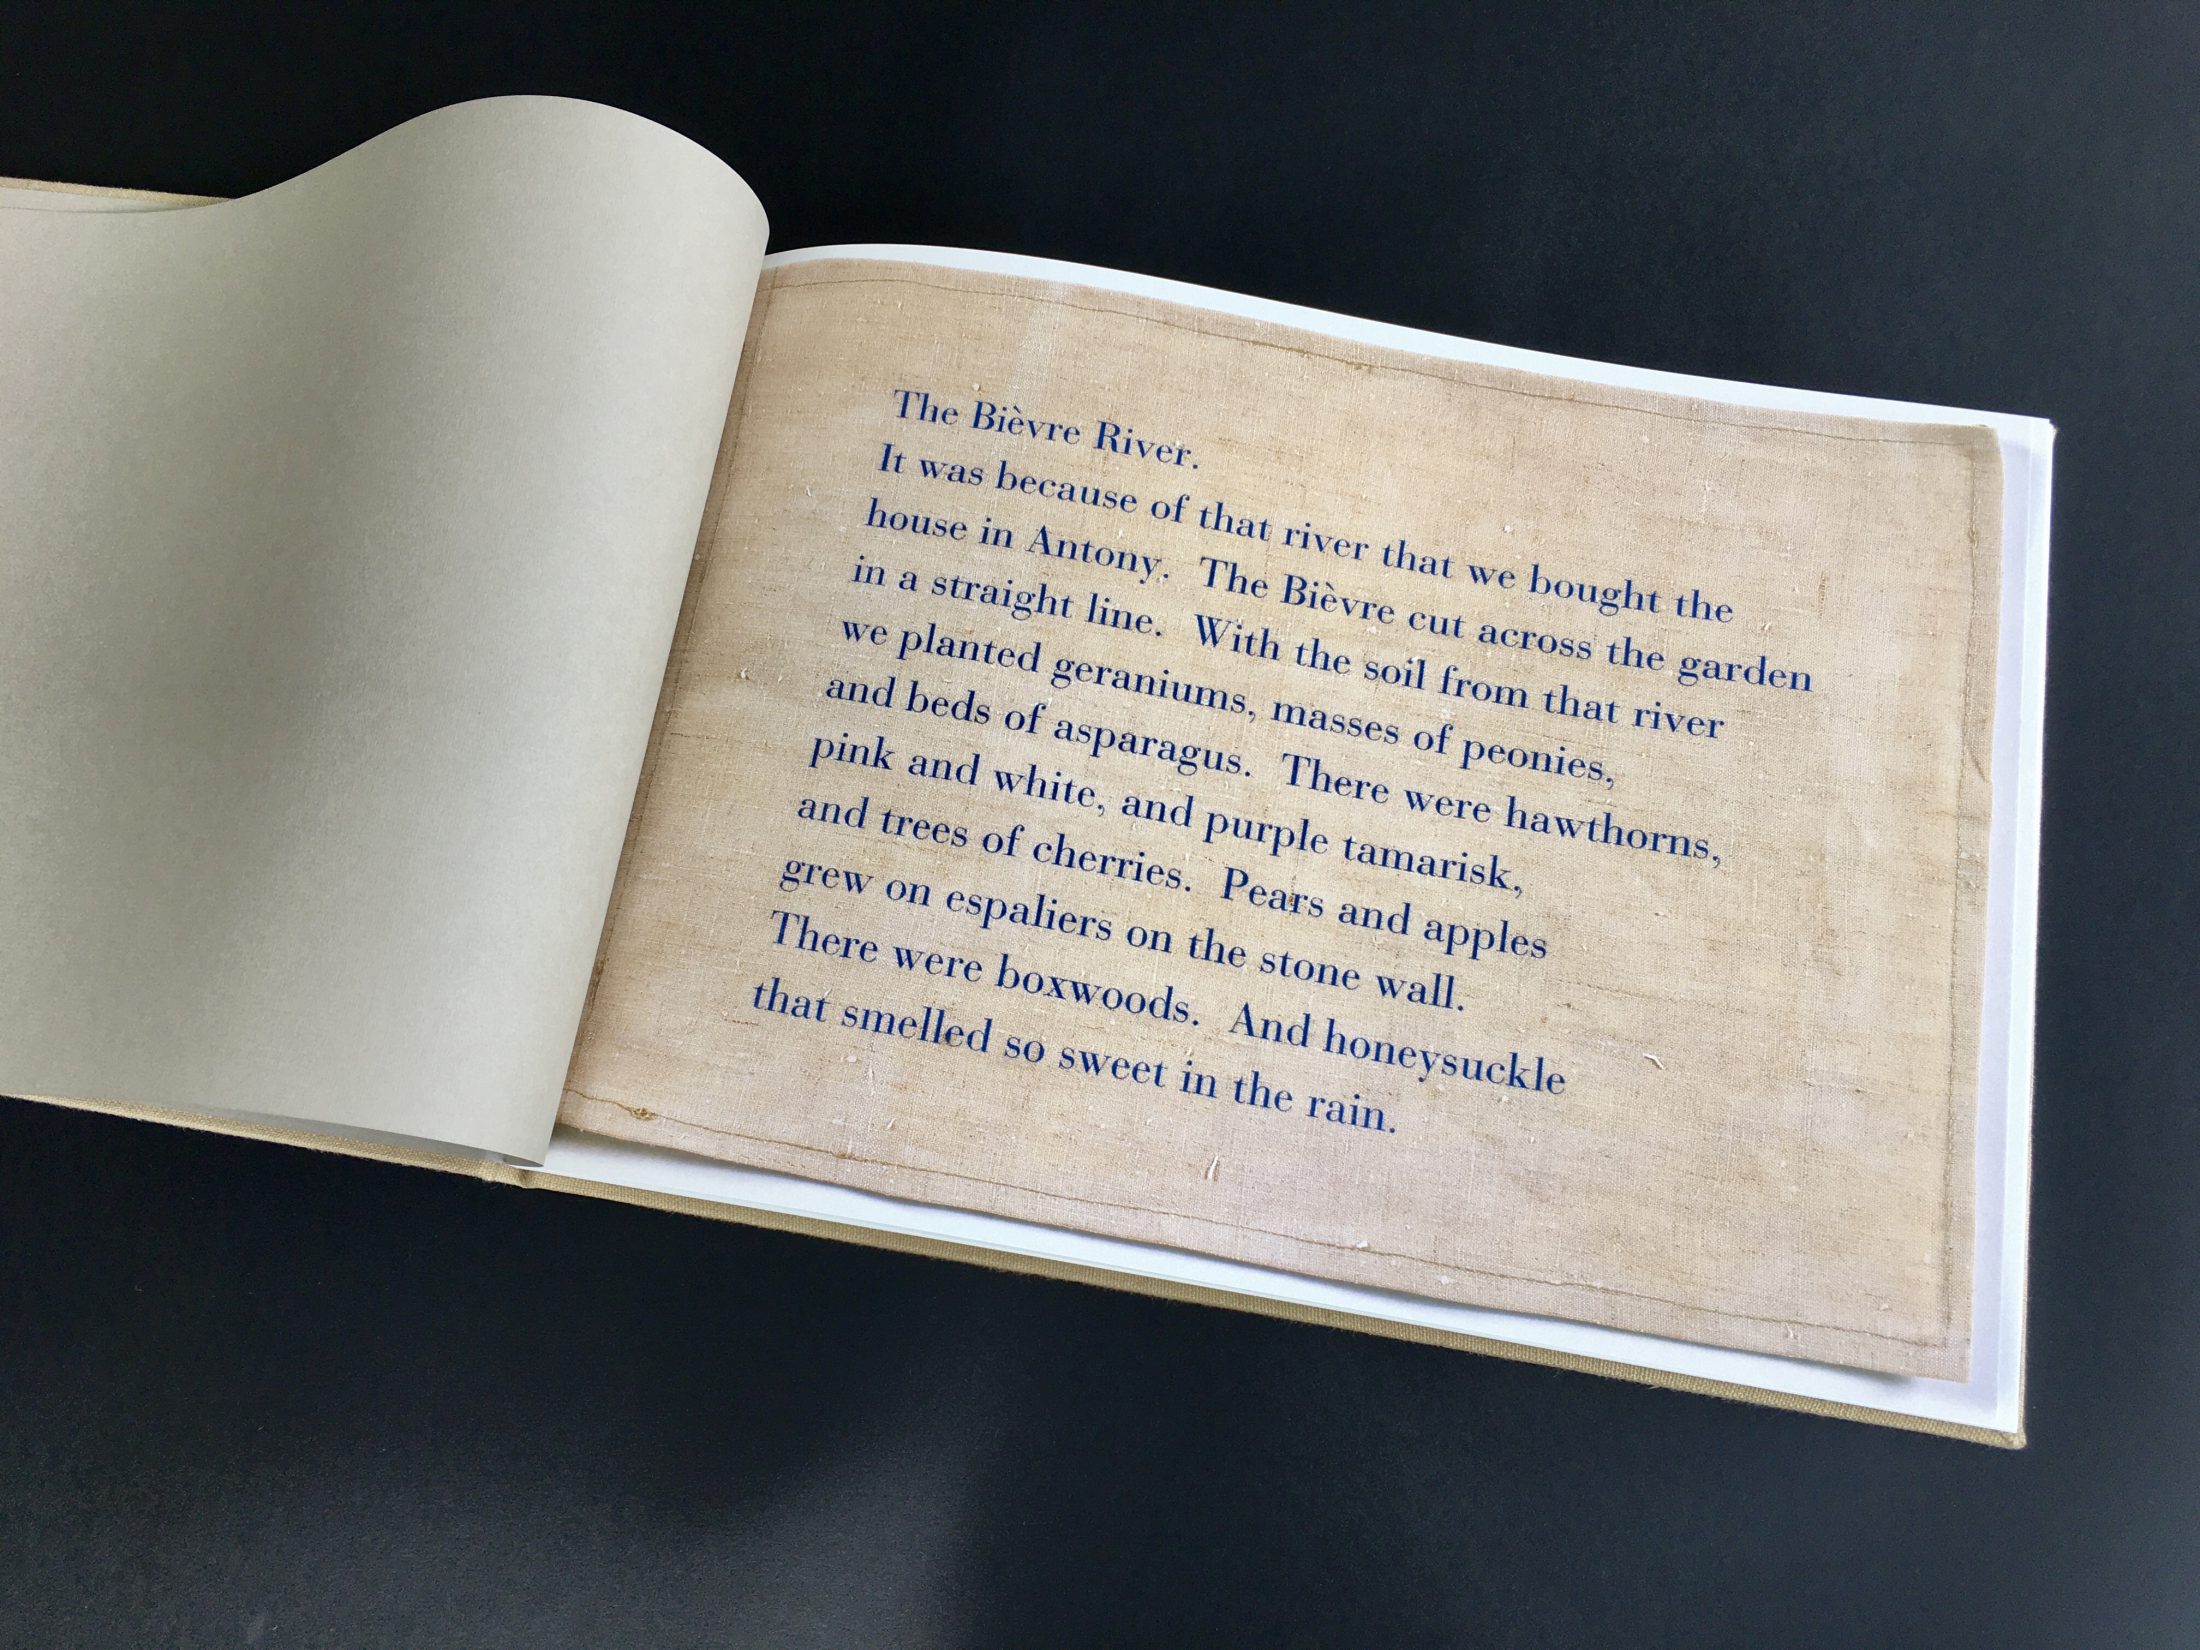 The Bièvre River.
It was because of that river that we bought the
house in Antony. The Bièvre cut across the garden
in a straight line. With the soil from that river
we planted geraniums, masses of peonies,
and beds of asparagus. There were hawthorns,
pink and white, and purple tamarisk,
and trees of cherries. Pears and apples
grew on espaliers on the stone wall.
There were boxwoods. And honeysuckle
that smelled so sweet in the rain.